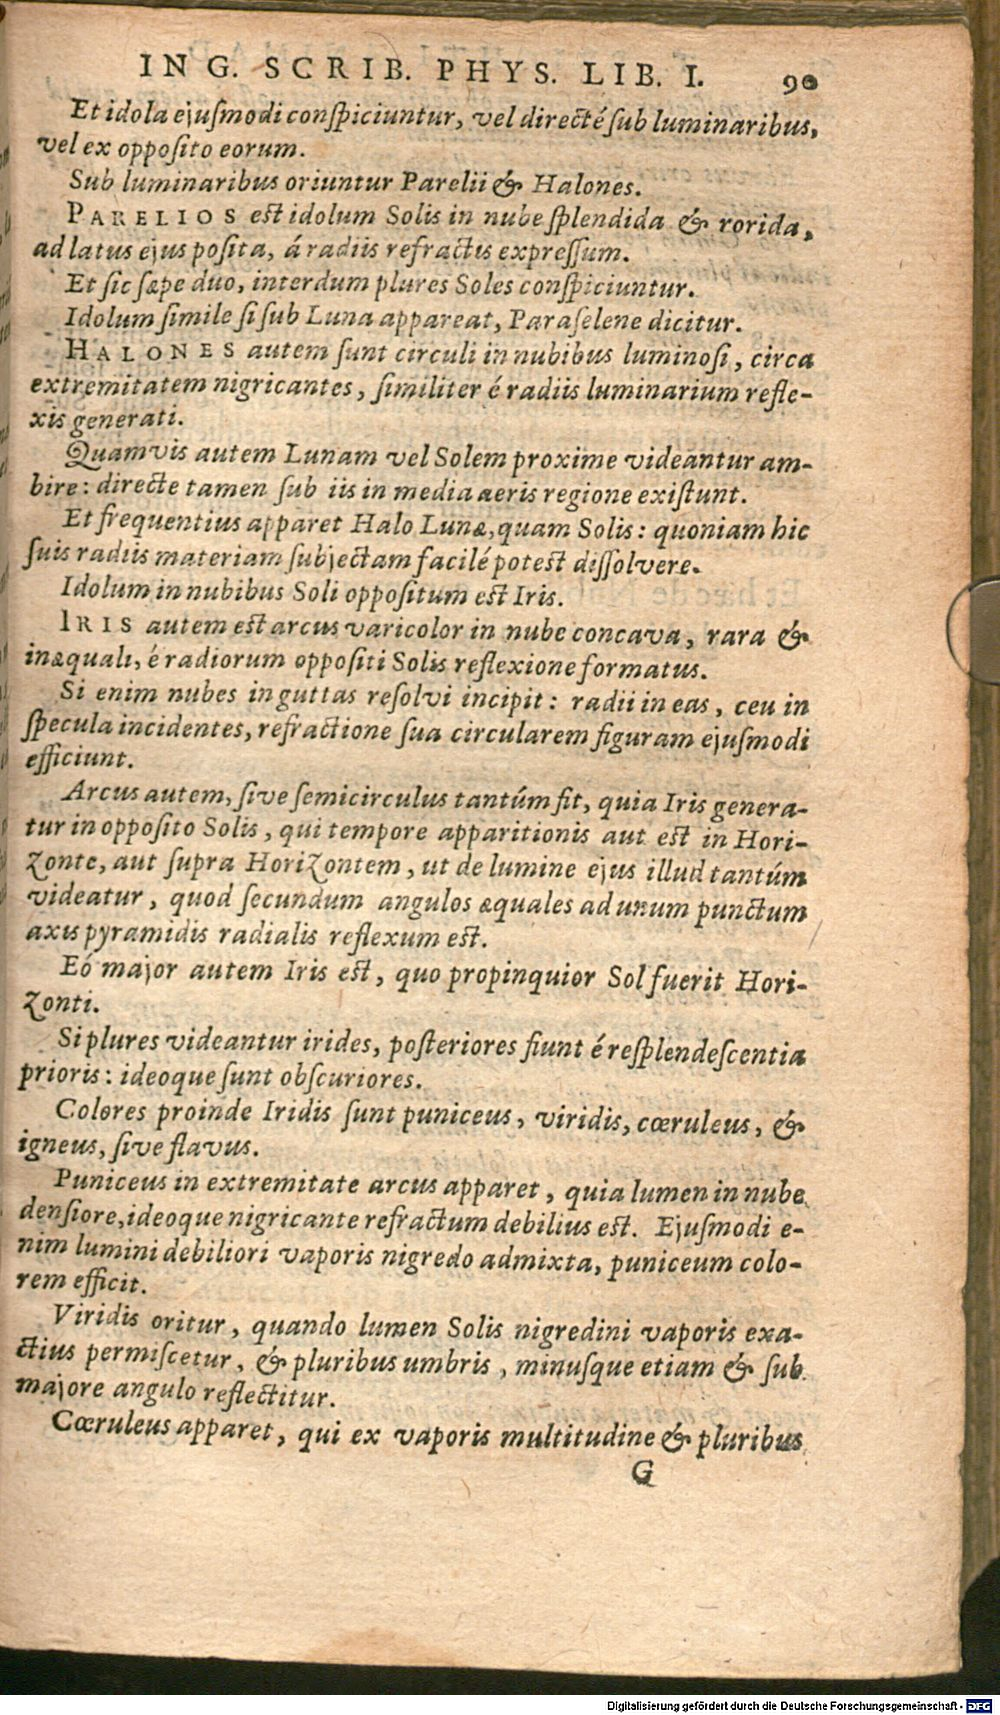 IN G. SCRIB. PHYS. LIB. I. 90
Et idola ejuſmodi conſpiciuntur, vel directé ſub luminaribus,
vel ex oppoſito eorum.
Sub luminaribus oriuntur Parelii & Halones.
PARELIOS eſt idolum Solis in nube ſplendida & rorida,
ad latus ejus poſita, á radiis refractis expreſſum.
Et ſic ſæpe duo, interdum plures Soles conſpiciuntur.
Idolum ſimile ſi ſub Luna appareat, Paraſelene dicitur.
HALONES autem ſunt circuli in nubibus luminoſi, circa
extremitatem nigricantes, ſimiliter é radiis luminarium refle-
xis generati.
Quamvis autem Lunam vel Solem proxime videantur am-
bire: directe tamen ſub iis in media aeris regione exiſtunt.
Et frequentius apparet Halo Lunæ, quam Solis: quoniam hic
ſuis radiis materiam ſubjectam facilé poteſt diſſolvere.
Idolum in nubibus Soli oppoſitum eſt Iris.
IRIS autem eſt arcus varicolor in nube concava, rara &
inæquali, é radiorum oppoſiti Solis reflexione formatus.
Si enim nubes in guttas reſolvi incipit: radii in eas, ceu in
ſpecula incidentes, refractione ſua circularem figuram ejuſmodi
efficiunt.
Arcus autem, ſive ſemicirculus tantúm fit, quia Iris genera-
tur in oppoſito Solis, qui tempore apparitionis aut eſt in Hori-
zonte, aut ſupra Horizontem, ut de lumine ejus illud tantúm
videatur, quod ſecundum angulos æquales ad unum punctum
axis pyramidis radialis reflexum eſt.
Eó major autem Iris eſt, quo propinquior Sol fuerit Hori-
zonti.
Si plures videantur irides, poſteriores fiunt é reſplendeſcentia
prioris: ideoque ſunt obſcuriores.
Colores proinde Iridis ſunt puniceus, viridis, cœruleus, &
igneus, ſive flavus.
Puniceus in extremitate arcus apparet, quia lumen in nube
denſiore, ideoque nigricante refractum debilius eſt. Ejuſmodi e-
nim lumini debiliori vaporis nigredo admixta, puniceum colo-
rem efficit.
Viridis oritur, quando lumen Solis nigredini vaporis exa-
ctius permiſcetur, & pluribus umbris, minuſque etiam & ſub
majore angulo reflectitur.
Cœruleus apparet, qui ex vaporis multitudine & pluribus
G
Digitalisierung gefördert durch die Deutsche Forschungsgemeinschaft - DFG